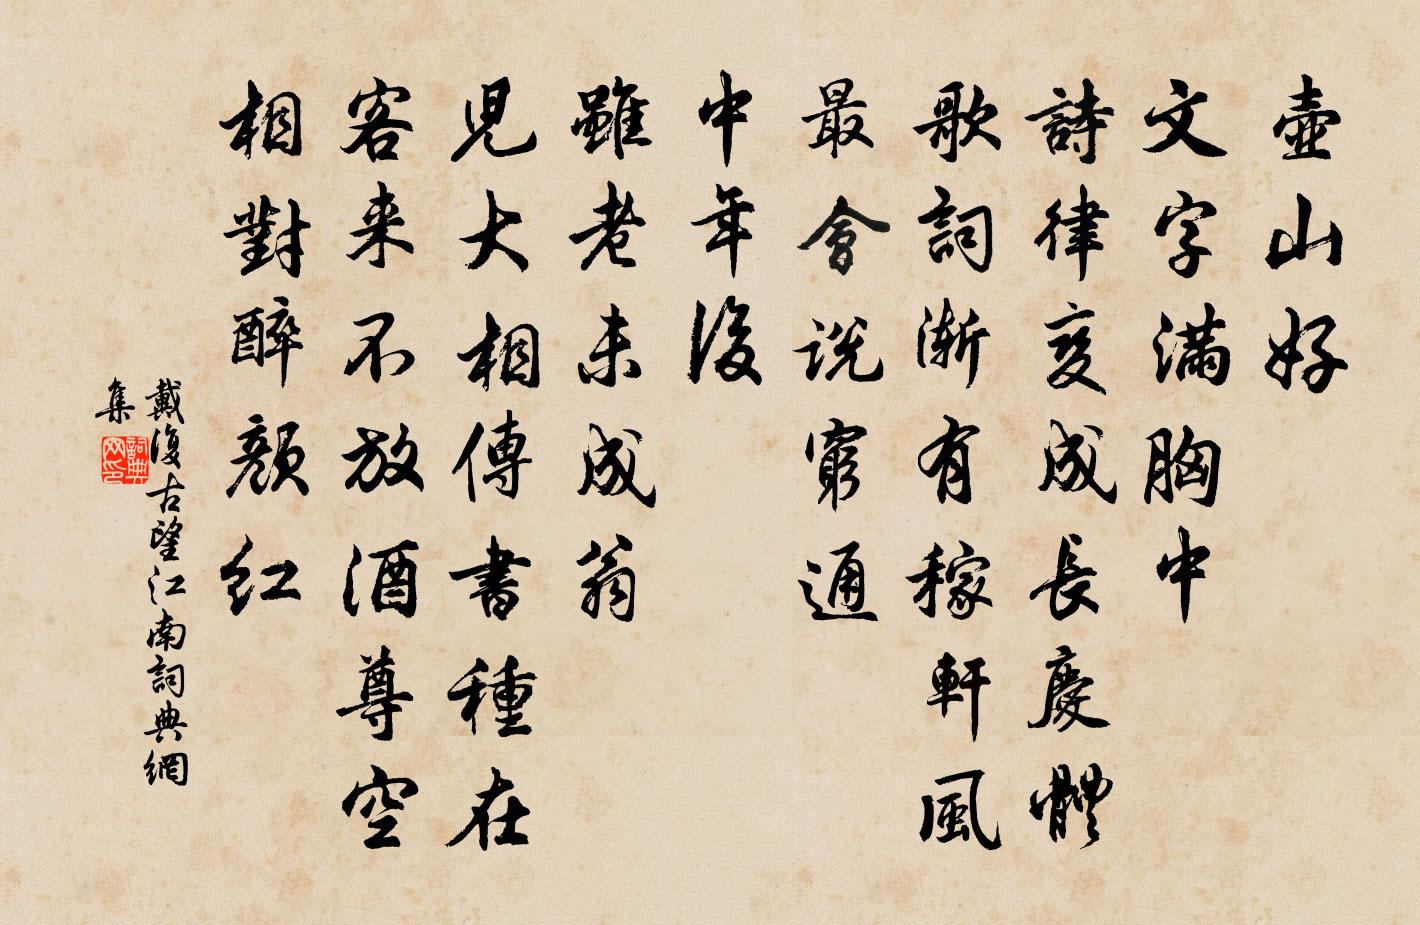 壺山好
文字滿胸中
詩律變成長慶體
歌詞漸有稼軒風
最會說窮通
中年後
雖老未成翁
児大相傳書種在
客来不放酒尊空
相對醉顏紅
戴復古望江南詞典網
集
詞典
网印